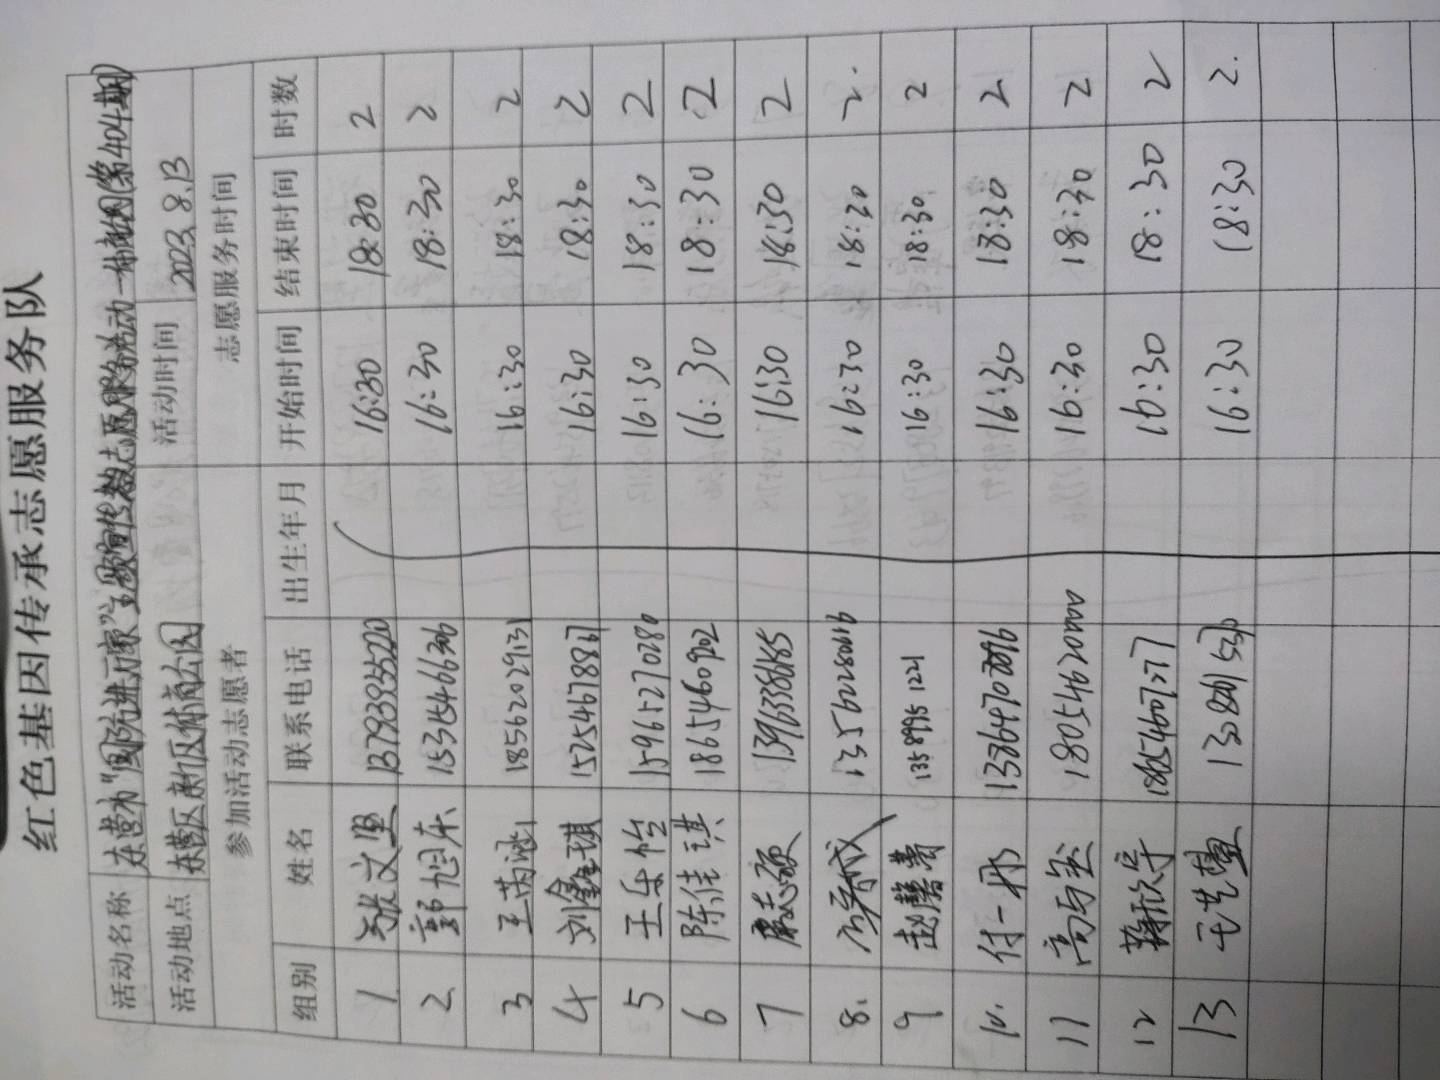 红色基因传承志愿服务队
活动名称 东营市"国防进万家"主题宣传志愿服务活动 (第404期)
活动地点 东营区新区体育公园 活动时间 2023.8.13
参加活动志愿者 志愿服务时间
组别 姓名 联系电话 出生年月 开始时间 结束时间 时数
1 张文 16:30 18:30 2
2 郭旭东 15315466306 16:30 18:30 2
3 王芮涵 18562029131 16:30 18:30 2
4 刘鑫琪 15254678867 16:30 18:30 2
5 王乐怡 15965270280 16:30 18:30 2
6 陈佳琪 18654609202 16:30 18:30 2
7 志硕 13963386185 16:30 18:30 2
8. 16:30 18:30 2.
9 赵蘑菁 13589951221 16:30 18:30 2
10. 付一丹 16:30 18:30 2
11 高与 18054620000 16:30 18:30 2
12 薛欣宇 16:30 18:30 2
13 16:30 18:30 2.